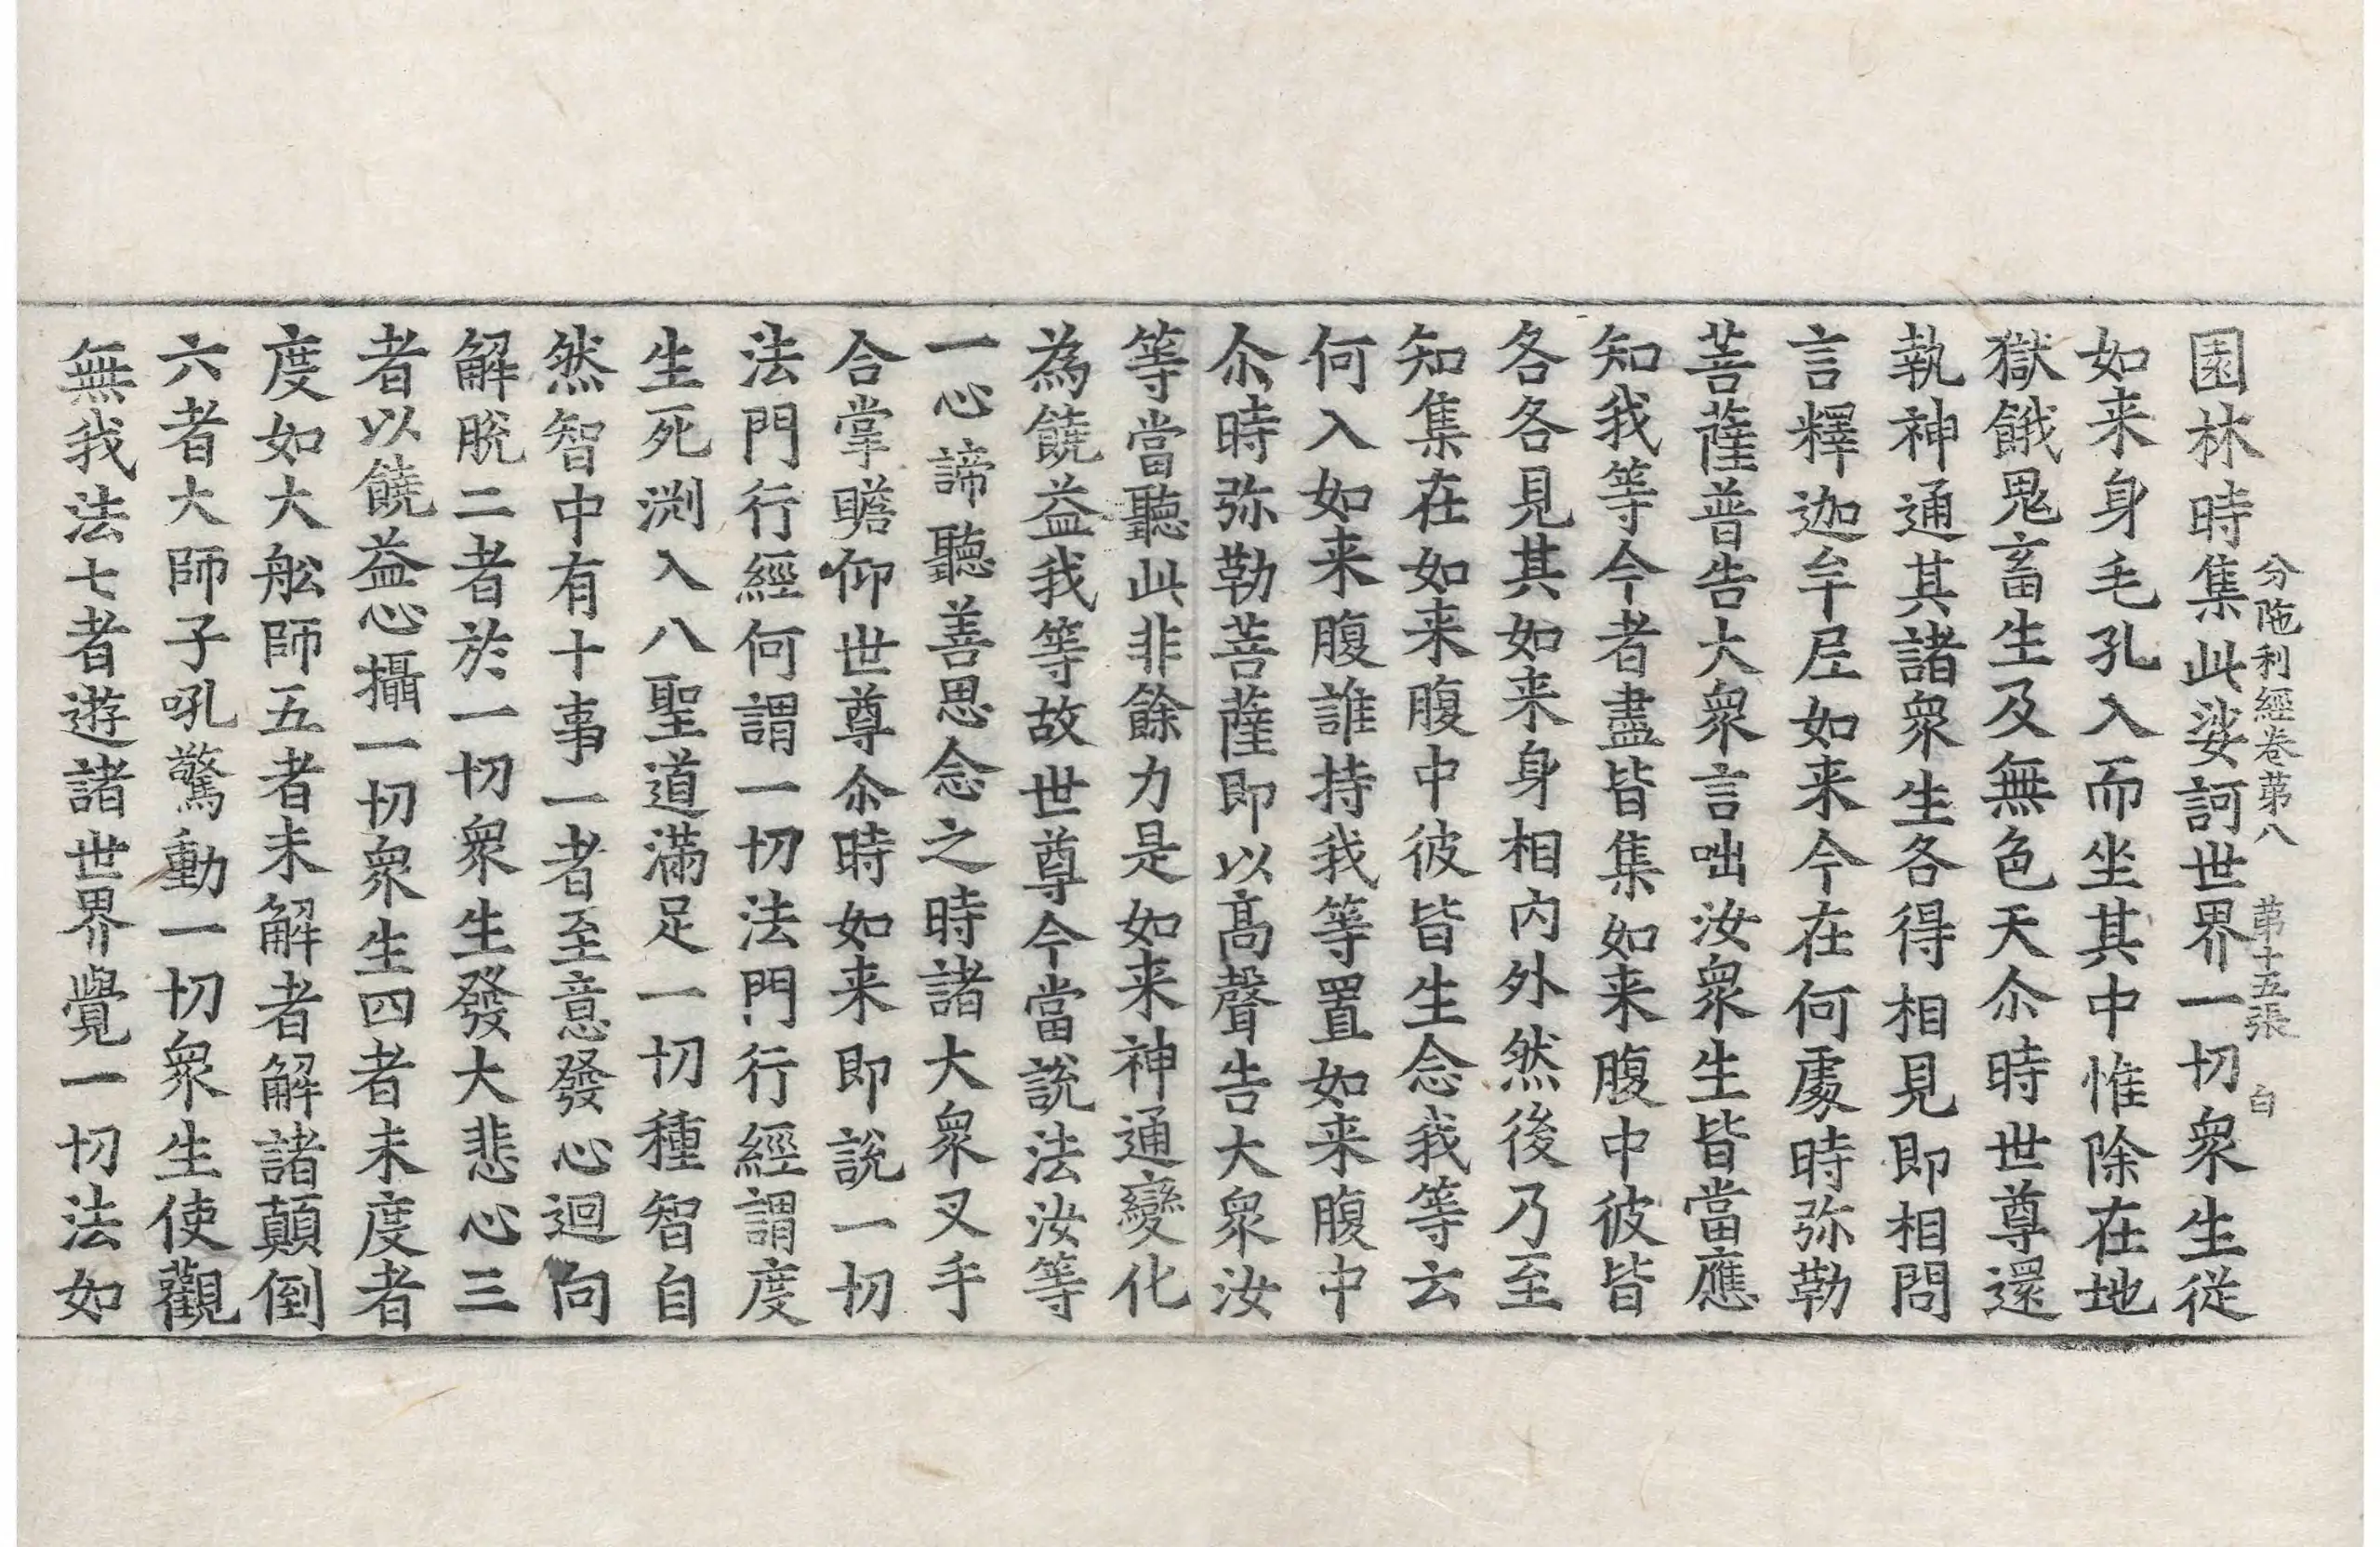 園林時集此娑訶世界一切衆生従
分陁利經卷苐八 苐十五張 白
如来身毛孔入而坐其中惟除在地
獄餓鬼畜生及無色天尒時世尊還
執神通其諸衆生各得相見即相問
言釋迦牟尼如来今在何處時弥勒
菩薩普告大衆言咄汝衆生皆當應
知我等今者盡皆集如来腹中彼皆
各各見其如来身相内外然後乃至
知集在如来腹中彼皆生念我等云
何入如来腹誰持我等置如来腹中
尒時弥勒菩薩即以髙聲告大衆汝
等當聽此非餘力是如来神通變化
為饒益我等故世尊今當説法汝等
一心諦聽善思念之時諸大衆叉手
合掌瞻仰世尊尒時如来即説一切
法門行經何謂一切法門行經謂度
生死渕入八聖道滿足一切種智自
然智中有十事一者至意發心迴向
解脫二者於一切衆生發大悲心三
者以饒益心攝一切衆生四者未度者
度如大舩師五者未解者解諸顛倒
六者大師子吼驚動一切衆生使觀
無我法七者遊諸世界覺一切法如